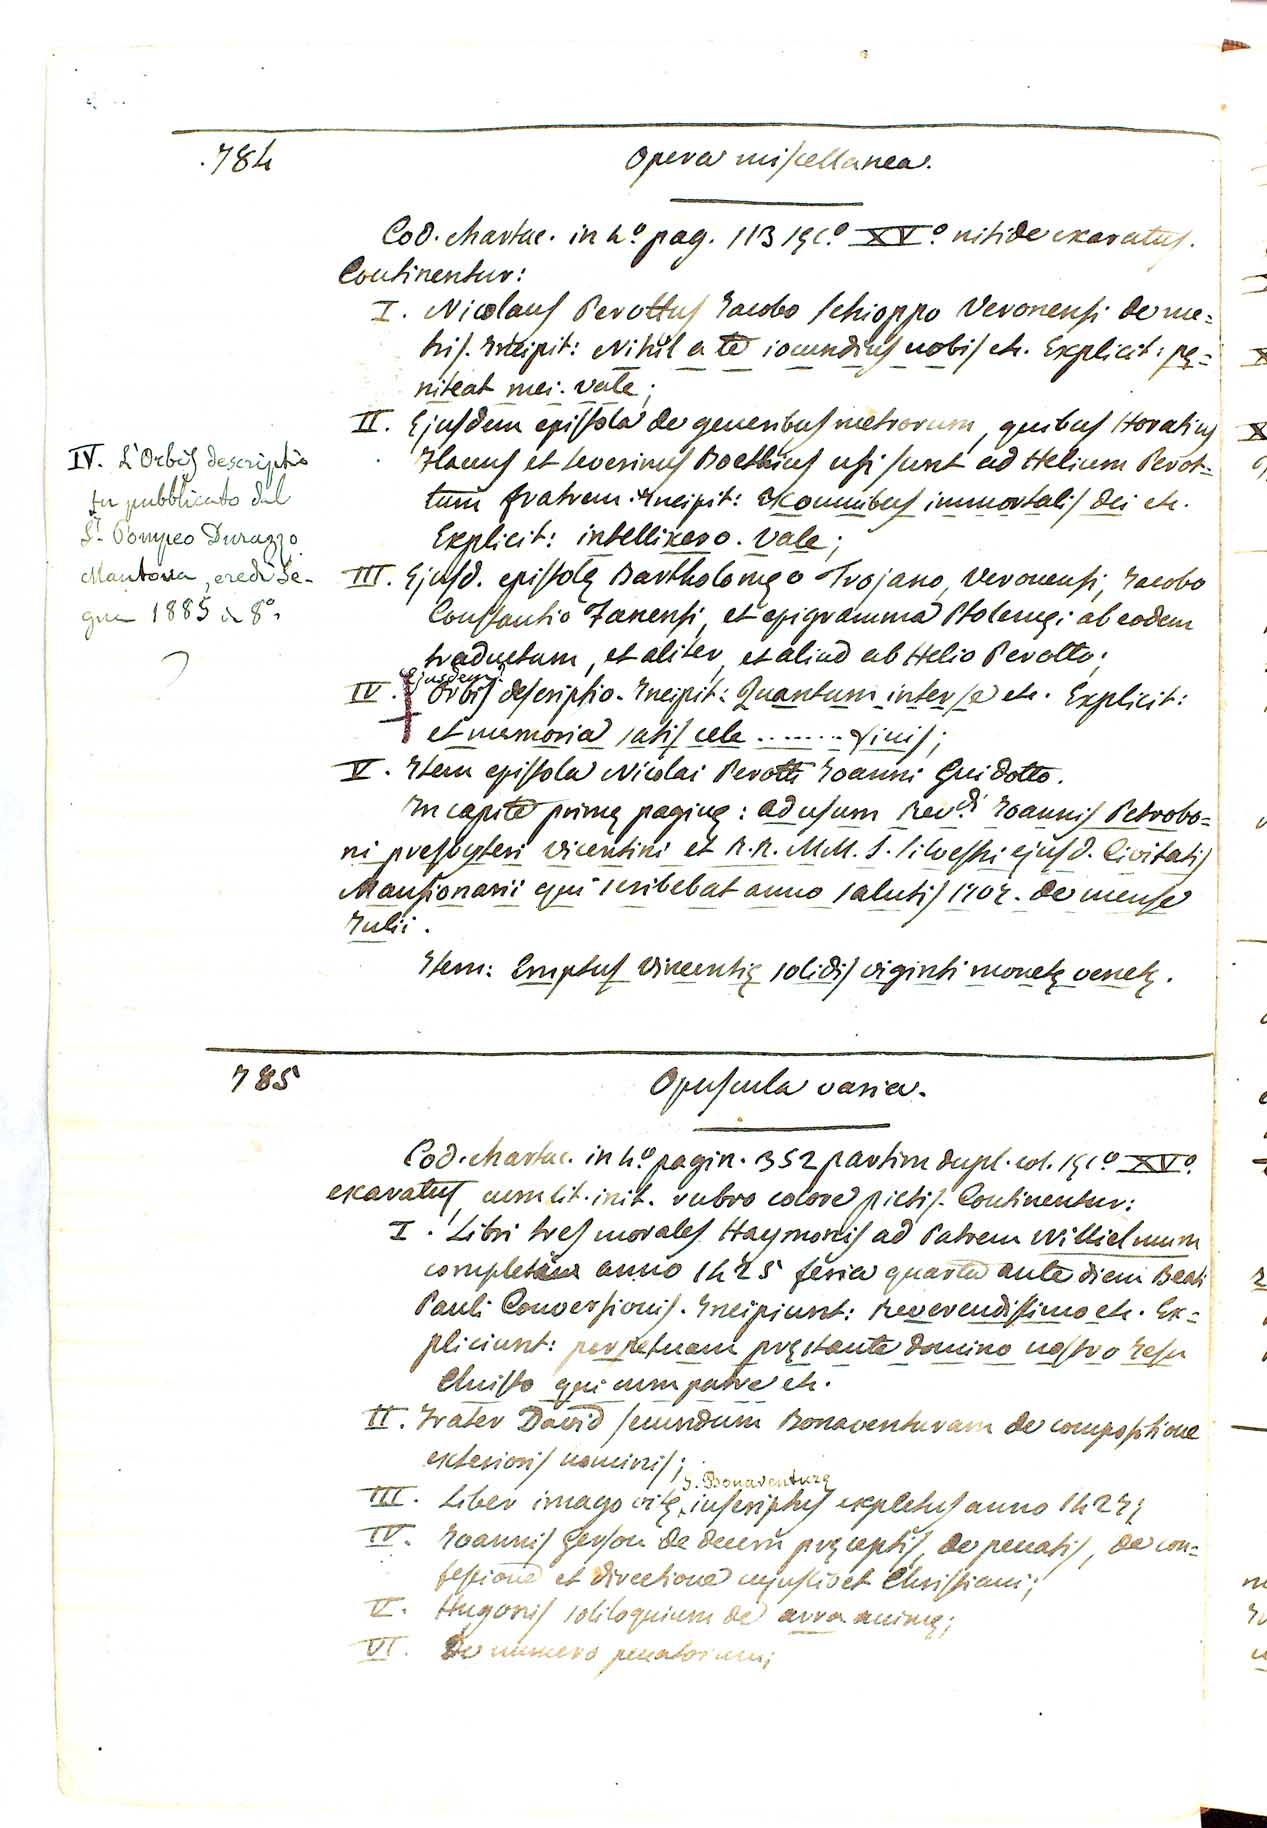 784
Opera miscellanea.
Cod. chartac. in 4.º pag. 113 sęc.º XV.º nitide exaratus.
Continentur:
I. Nicolaus Perottus Jacobo Schioppo Veronensi de me=
tris. Incipit: Nihil a te iocundius nobis etc. Explicit: pę=
niteat mei. vale;
II. Ejusdem epistola de generibus metrorum, quibus Horatius
Flacus et Severinus Boethius usi sunt ad Helium Perot=
tum fratrem. Incipit: Ex omnibus immortalis dei etc.
Explicit: intellixero. Vale;
III. Ejusd. epistolę Bartholomęo Trojano, Veronensi, Jacobo
Constantio Fanensi, et epigramma Ptolemęi ab eodem
traductum, et aliter, et aliud ab Helio Perotto;
ejusdem?
IV. Orbis descriptio. Incipit: Quantum inter se etc. Explicit:
et memoria satis cele ........ finis;
V. Item epistola Nicolai Perotti Joanni Guidotto.
In capite primę paginę: ad usum Rev.di Joannis Petrobo=
ni presbyteri vicentini et R.R. M.M. S. Silvestri ejusd. Civitatis
Mansionarii qui scribebat anno salutis 1707. de mense
Julii.
Item: Emptus Vincentię solidis viginti monetę venetę.
IV. L'Orbis descriptio
fu pubblicato dal
S.r Pompeo Durazzo
Mantova, eredi Se-
gna 1885 in 8º.
785
Opuscula varia.
Cod. chartac. in 4.º pagin. 352 partim dupl. col. sęc.º XV.º
exaratus, cum lit. init. rubro colore pictis. Continentur:
I. Libri tres morales Haymonis ad Patrem Willielmum
completi anno 1425 feria quarta ante diem Beati
Pauli Conversionis. Incipiunt: Reverendissimo etc. Ex=
pliciunt: perpetuam pręstante domino nostro Jesu
Christo qui cum patre etc.
II. Frater David secundum Bonaventuram de compositione
exterioris hominis;
S. Bonaventurę
III. Liber imago vitę inscriptus expletus anno 1427;
IV. Joannis Gerson de decem pręceptis, de peccatis, de con=
fessione et directione cujuslibet Christiani;
V. Hugonis soliloquium de arra animę;
VI. De numero peccatorum;